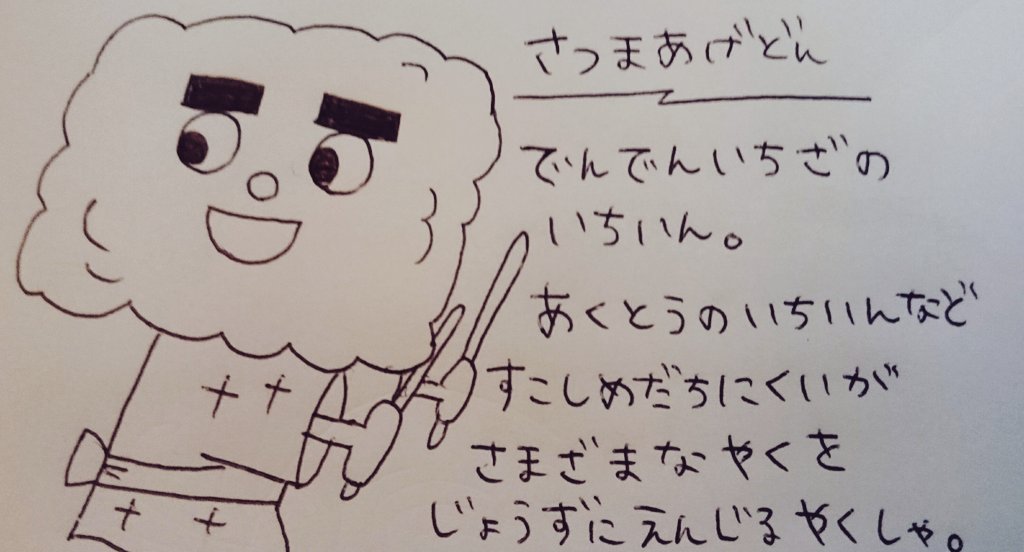 さつまあげどん
でんでんいちざの
いちいん。
あくとうのいちいんなど
すこしめだちにくいが
さまざまなやくを
じょうずにえんじるやくしゃ。